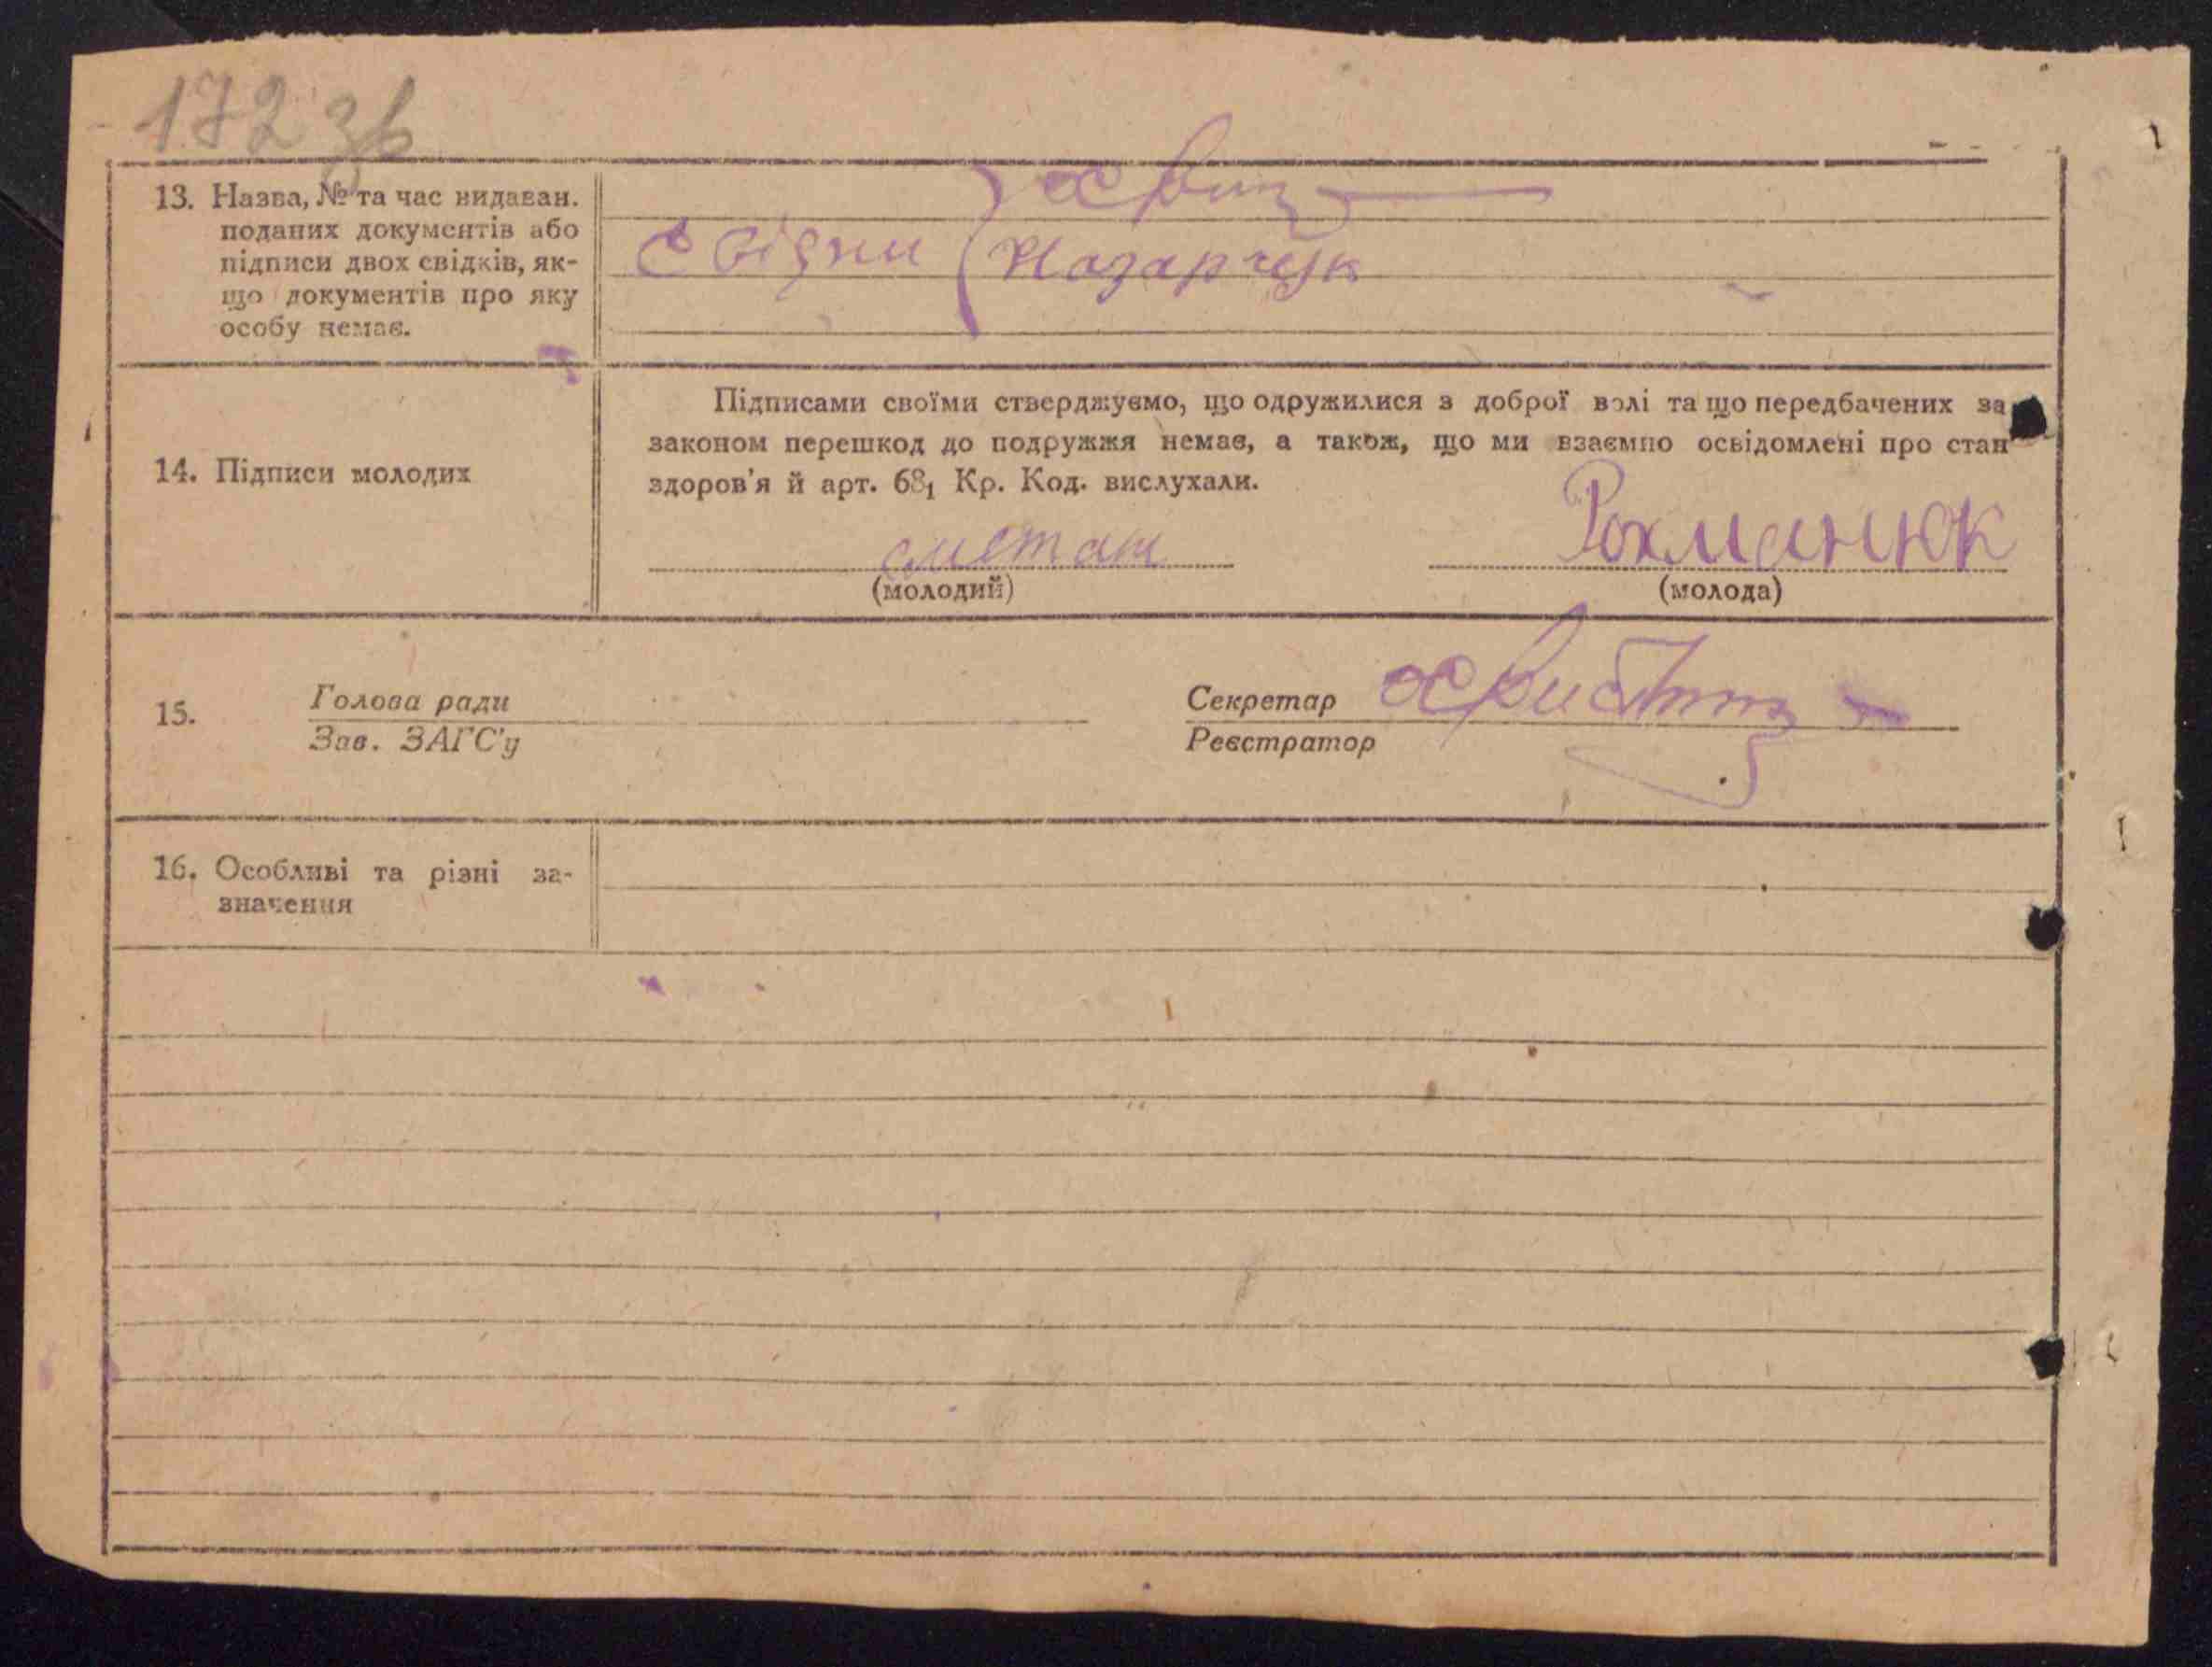 172 зв
13. Назва, № та час видаван.
поданих документів або
підписи двох свідків, як-
що документів про яку
особу немає.
Свідки
Назарчук
14. Підписи молодих
Підписами своїми стверджуємо, що одружилися з доброї волі та що передбачених за
законом перешкод до подружжя немає, а також, що ми взаємно освідомлені про стан
здоров'я й арт. 68₁ Кр. Код. вислухали.
сметан
Рохманюк
(молодий)
(молода)
15.
Голова ради
Зав. ЗАГС'у
Секретар
Реєстратор
16. Особливі та різні за-
значення